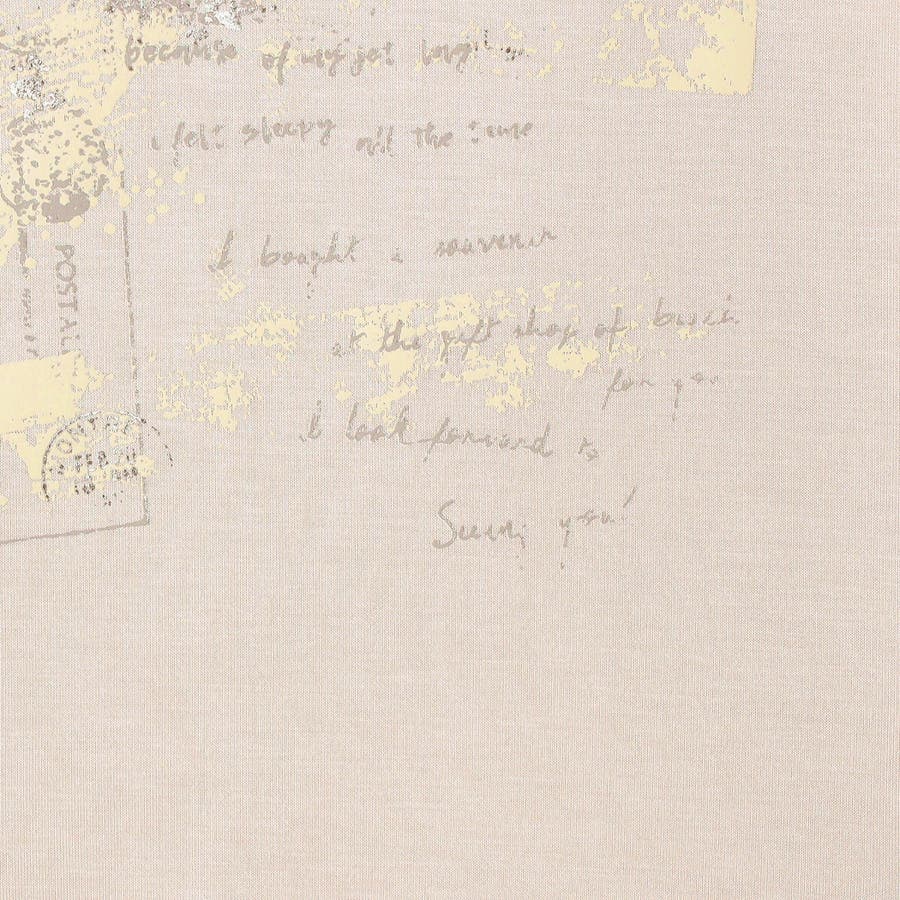 because of my jet lag
I felt sleepy all the time
I bought a souvenir
at the gift shop of
for you
I look forward to
Seeing you!
POSTAL
FEB 20